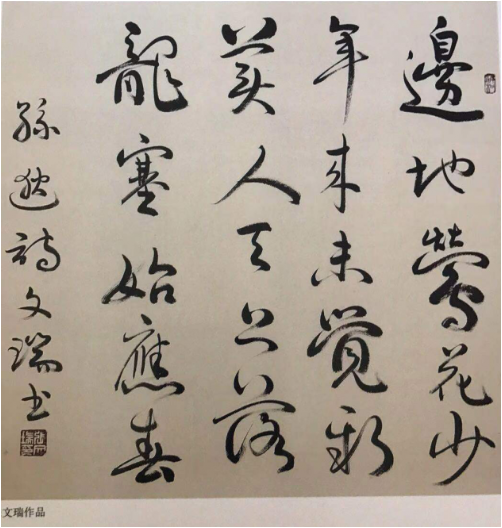 邊地鶯花少
年來未覺新
美人天上落
龍塞始應春
孫逖詩文瑞书
文瑞作品